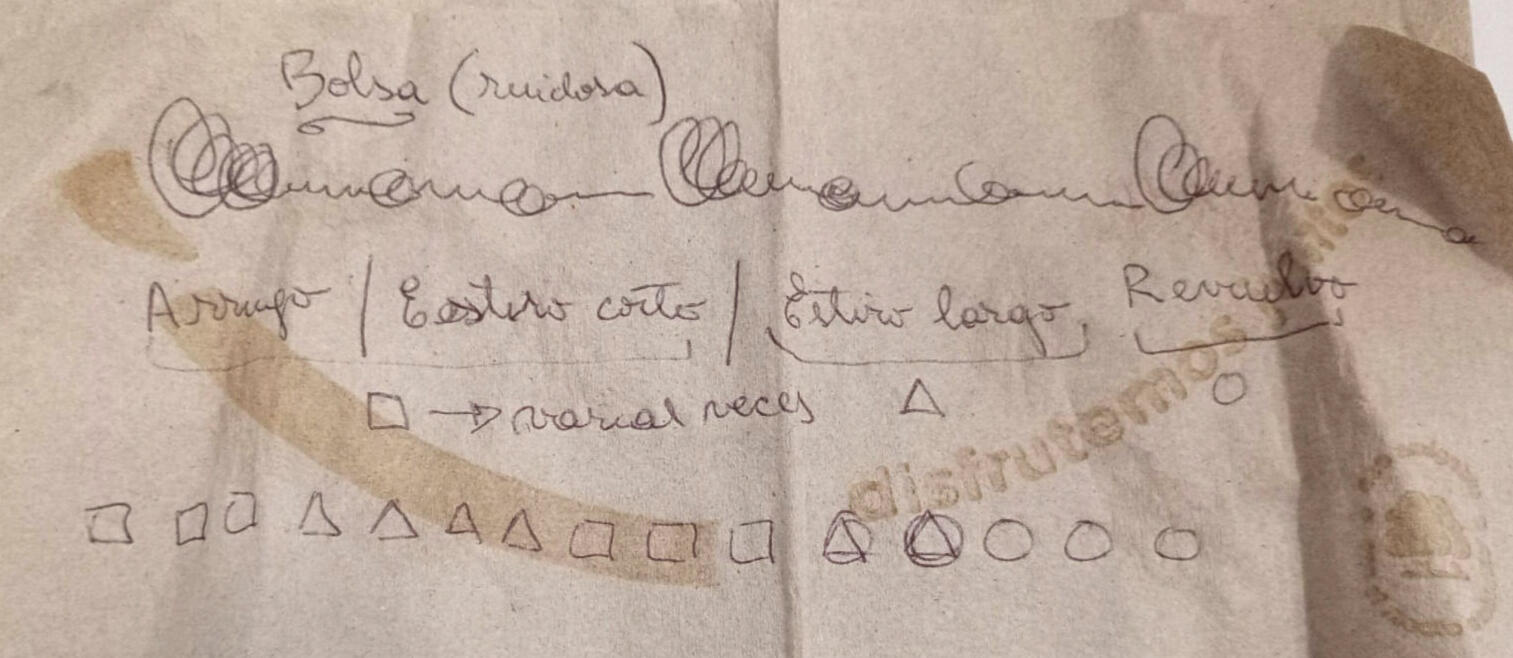 Bolsa (ruidosa)
Arrugo / Estiro corto / Estiro largo Revuelvo
□ → varias veces △ ○
□ □ □ △ △ △ △ □ □ □ ○ ○ ○
disfrutemos